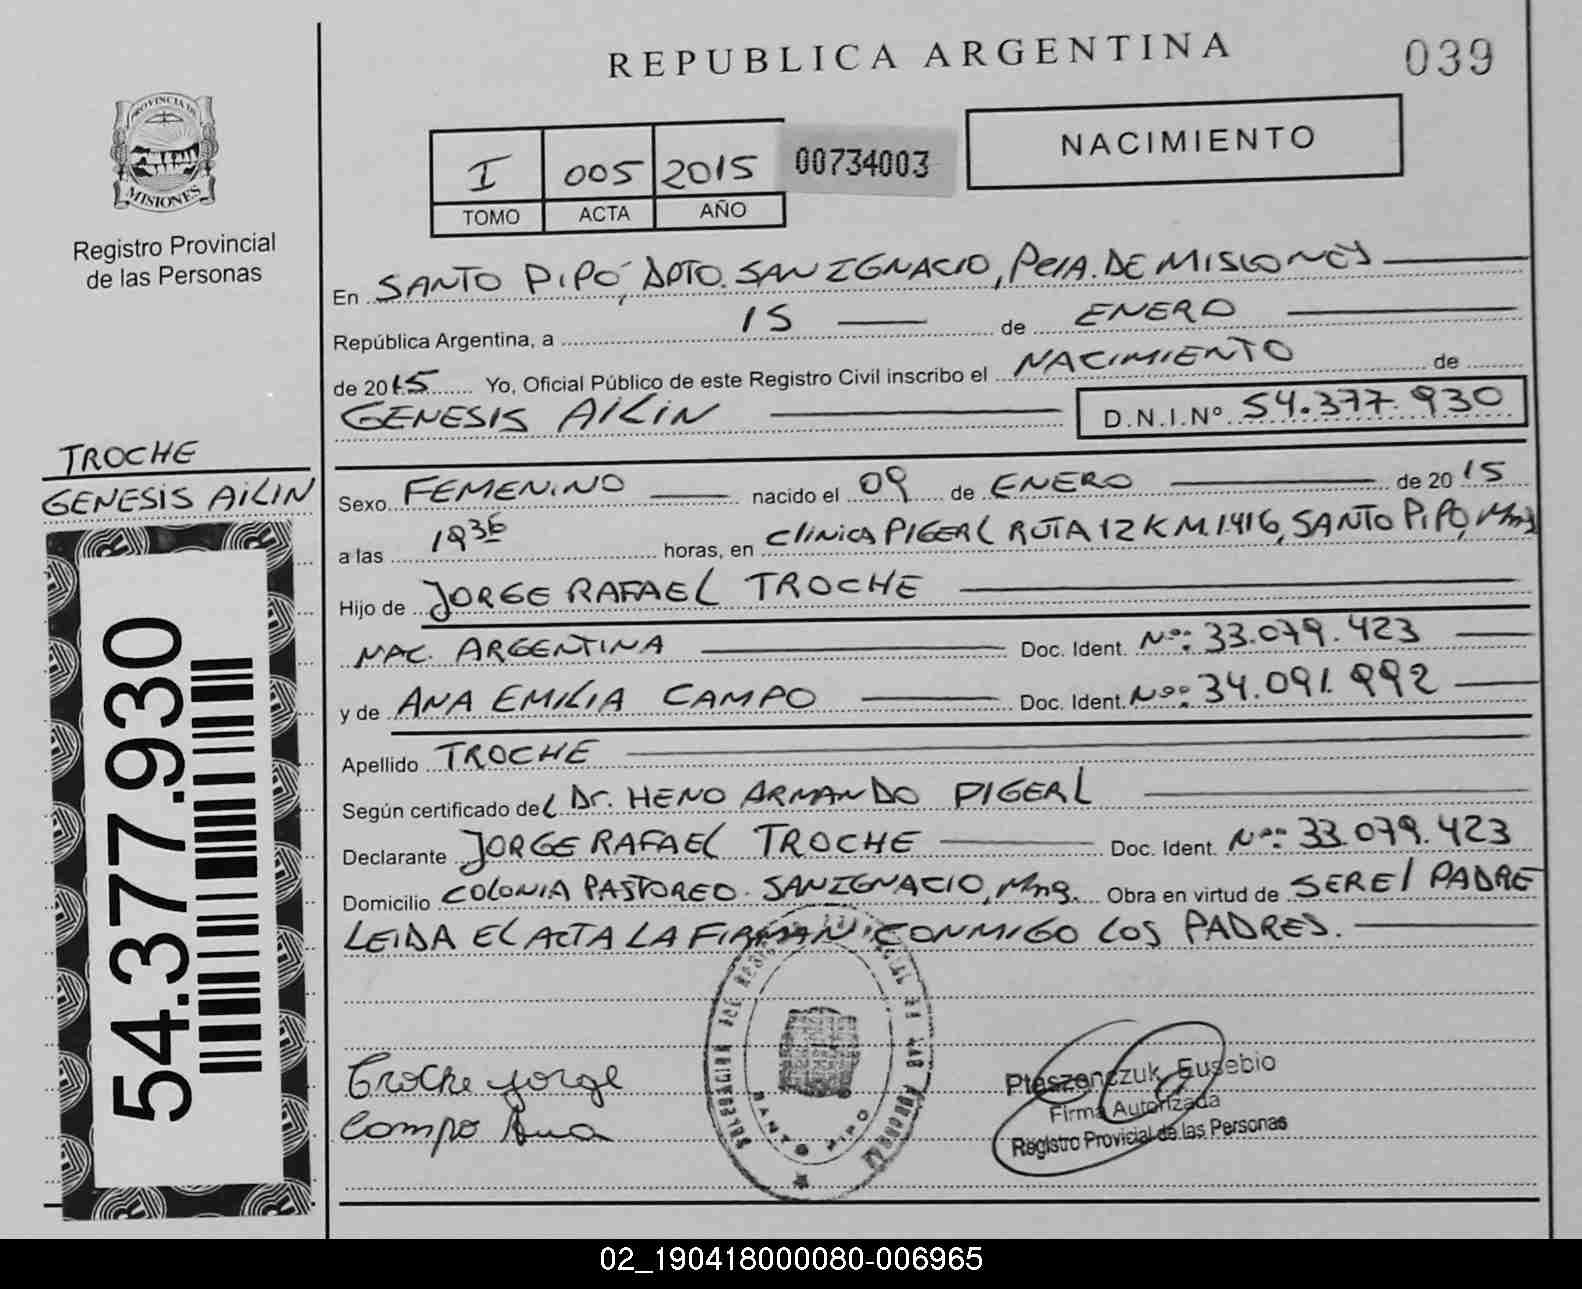 REPUBLICA ARGENTINA
039
PROVINCIA DE
MISIONES
Registro Provincial
de las Personas
I 005 2015 00734003
TOMO ACTA AÑO
NACIMIENTO
En SANTO PIPÓ, DPTO. SAN IGNACIO, PCIA. DE MISIONES
República Argentina, a 15 de ENERO
de 2015 Yo, Oficial Público de este Registro Civil inscribo el NACIMIENTO de
GENESIS AILIN D.N.I.Nº 54.377.930
TROCHE
GENESIS AILIN
54.377.930
Sexo FEMENINO nacido el 09 de ENERO de 2015
a las 1936 horas, en clinica PIGERL RUTA 12 KM.1416, SANTO PIPO, Mns
Hijo de JORGE RAFAEL TROCHE
NAC. ARGENTINA Doc. Ident. Nº: 33.079.423
y de ANA EMILIA CAMPO Doc. Ident. Nº: 34.091.992
Apellido TROCHE
Según certificado del Dr. HENO ARMANDO PIGERL
Declarante JORGE RAFAEL TROCHE Doc. Ident. Nº: 33.079.423
Domicilio COLONIA PASTOREO. SAN IGNACIO, Mns. Obra en virtud de SER El PADRE
LEIDA EL ACTA LA FIRMAN CONMIGO LOS PADRES.
Troche Jorge
Campo Ana
DELEGACION DEL REGISTRO PROVINCIAL DE LAS PERSONAS
SANTO PIPO
Ptaszenczuk, Eusebio
Firma Autorizada
Registro Provicial de las Personas
02_190418000080-006965